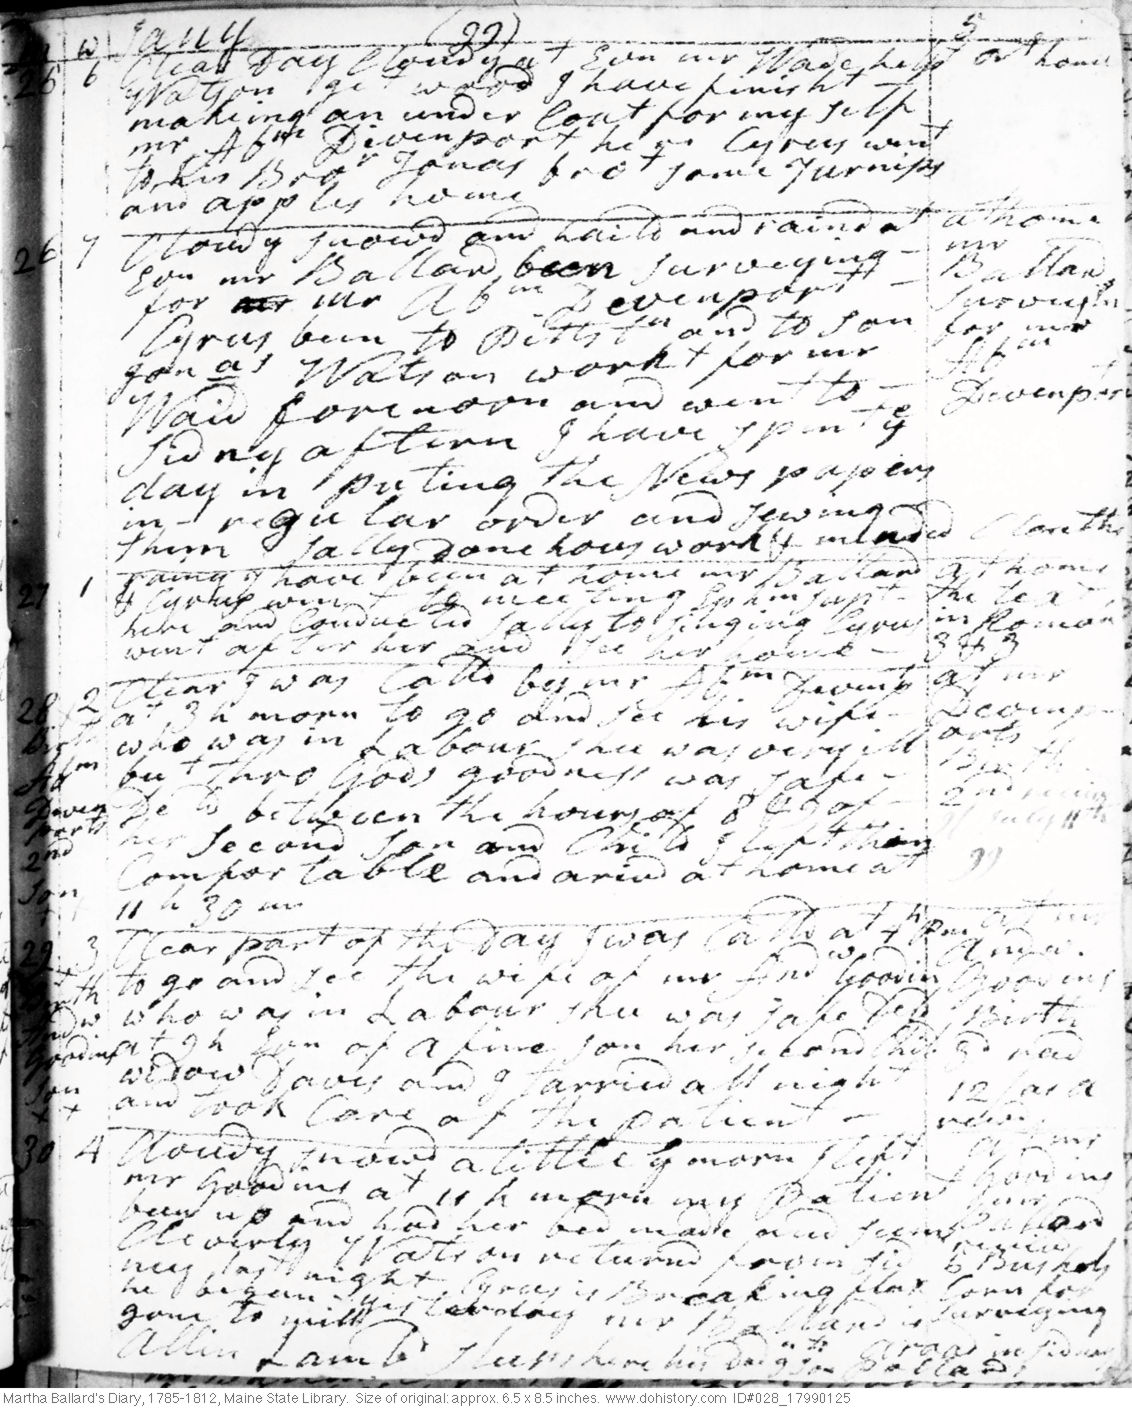 Jany (99) 5
m w
25 6 Clear Day Cloudy at Evn mr Wade helpt at home
Watson get wood I have finisht
making an under Coat for my self
mr Abm Devenport here Cyrus went
to his Bror Jonas brot some Turnips
and apples home
26 7 Cloudy snowd and haild and raind at at home
Evn mr Ballard been surveying mr
for mr Abm Devenport Ballard
Cyrus been to Pittstn and to son surveyin
Jonas Watson workt for mr for mr
Waid forenoon and went to Abm
Sidny aftern I have spent ye Devenport
day in puting the News papers
in regular order and sewing
them Sally Done hous work & mended Cloaths
27 1 rainy I have been at home mr Ballard at home
& Cyrus went to meeting Ephm supt the text
here and Conducted Sally to singing Cyrus in Romans
went after her and see her home 3 & 3
28 2 Clear I was Calld by mr Abm Devenpt at mr
at 3 h morn to go and see his wife Devenp
who was in Labour shee was very ill orts
but thro Gods goodness was safe Birth
Birth Abm Devenports 2nd son
Ded between the hours of 8 & 9 of 2nd
her second son and Child I left them July 11th
Comfortable and arivd at home at 99
11 h 30 m
29 3 Clear part of the Day I was Calld at 4 h Pm at mr
to go and see the wife of mr Andw Goodin Andw.
who was in Labour shee was safe Ded Goodins
at 9h Evn of a fine son her second Child Birth 3d
widow Davis and I tarried all night
and took Care of the patient
30 4 Cloudy snowd a little by morn I left at mr
mr Goodins at 11 h morn my patient Goodins
been up and had her bed made and seems mr Ballard
Cleverly Watson returned from Sid
ney last night Cyrus is Breaking flax 6 Bushels
he began yesterday mr Ballard is Corn for
gone to mill surveying
Allin Lamb sleeps here in Sidney
Martha Ballard's Diary, 1785-1812, Maine State Library. Size of original: approx. 6.5 x 8.5 inches. www.dohistory.com ID#028_17990125